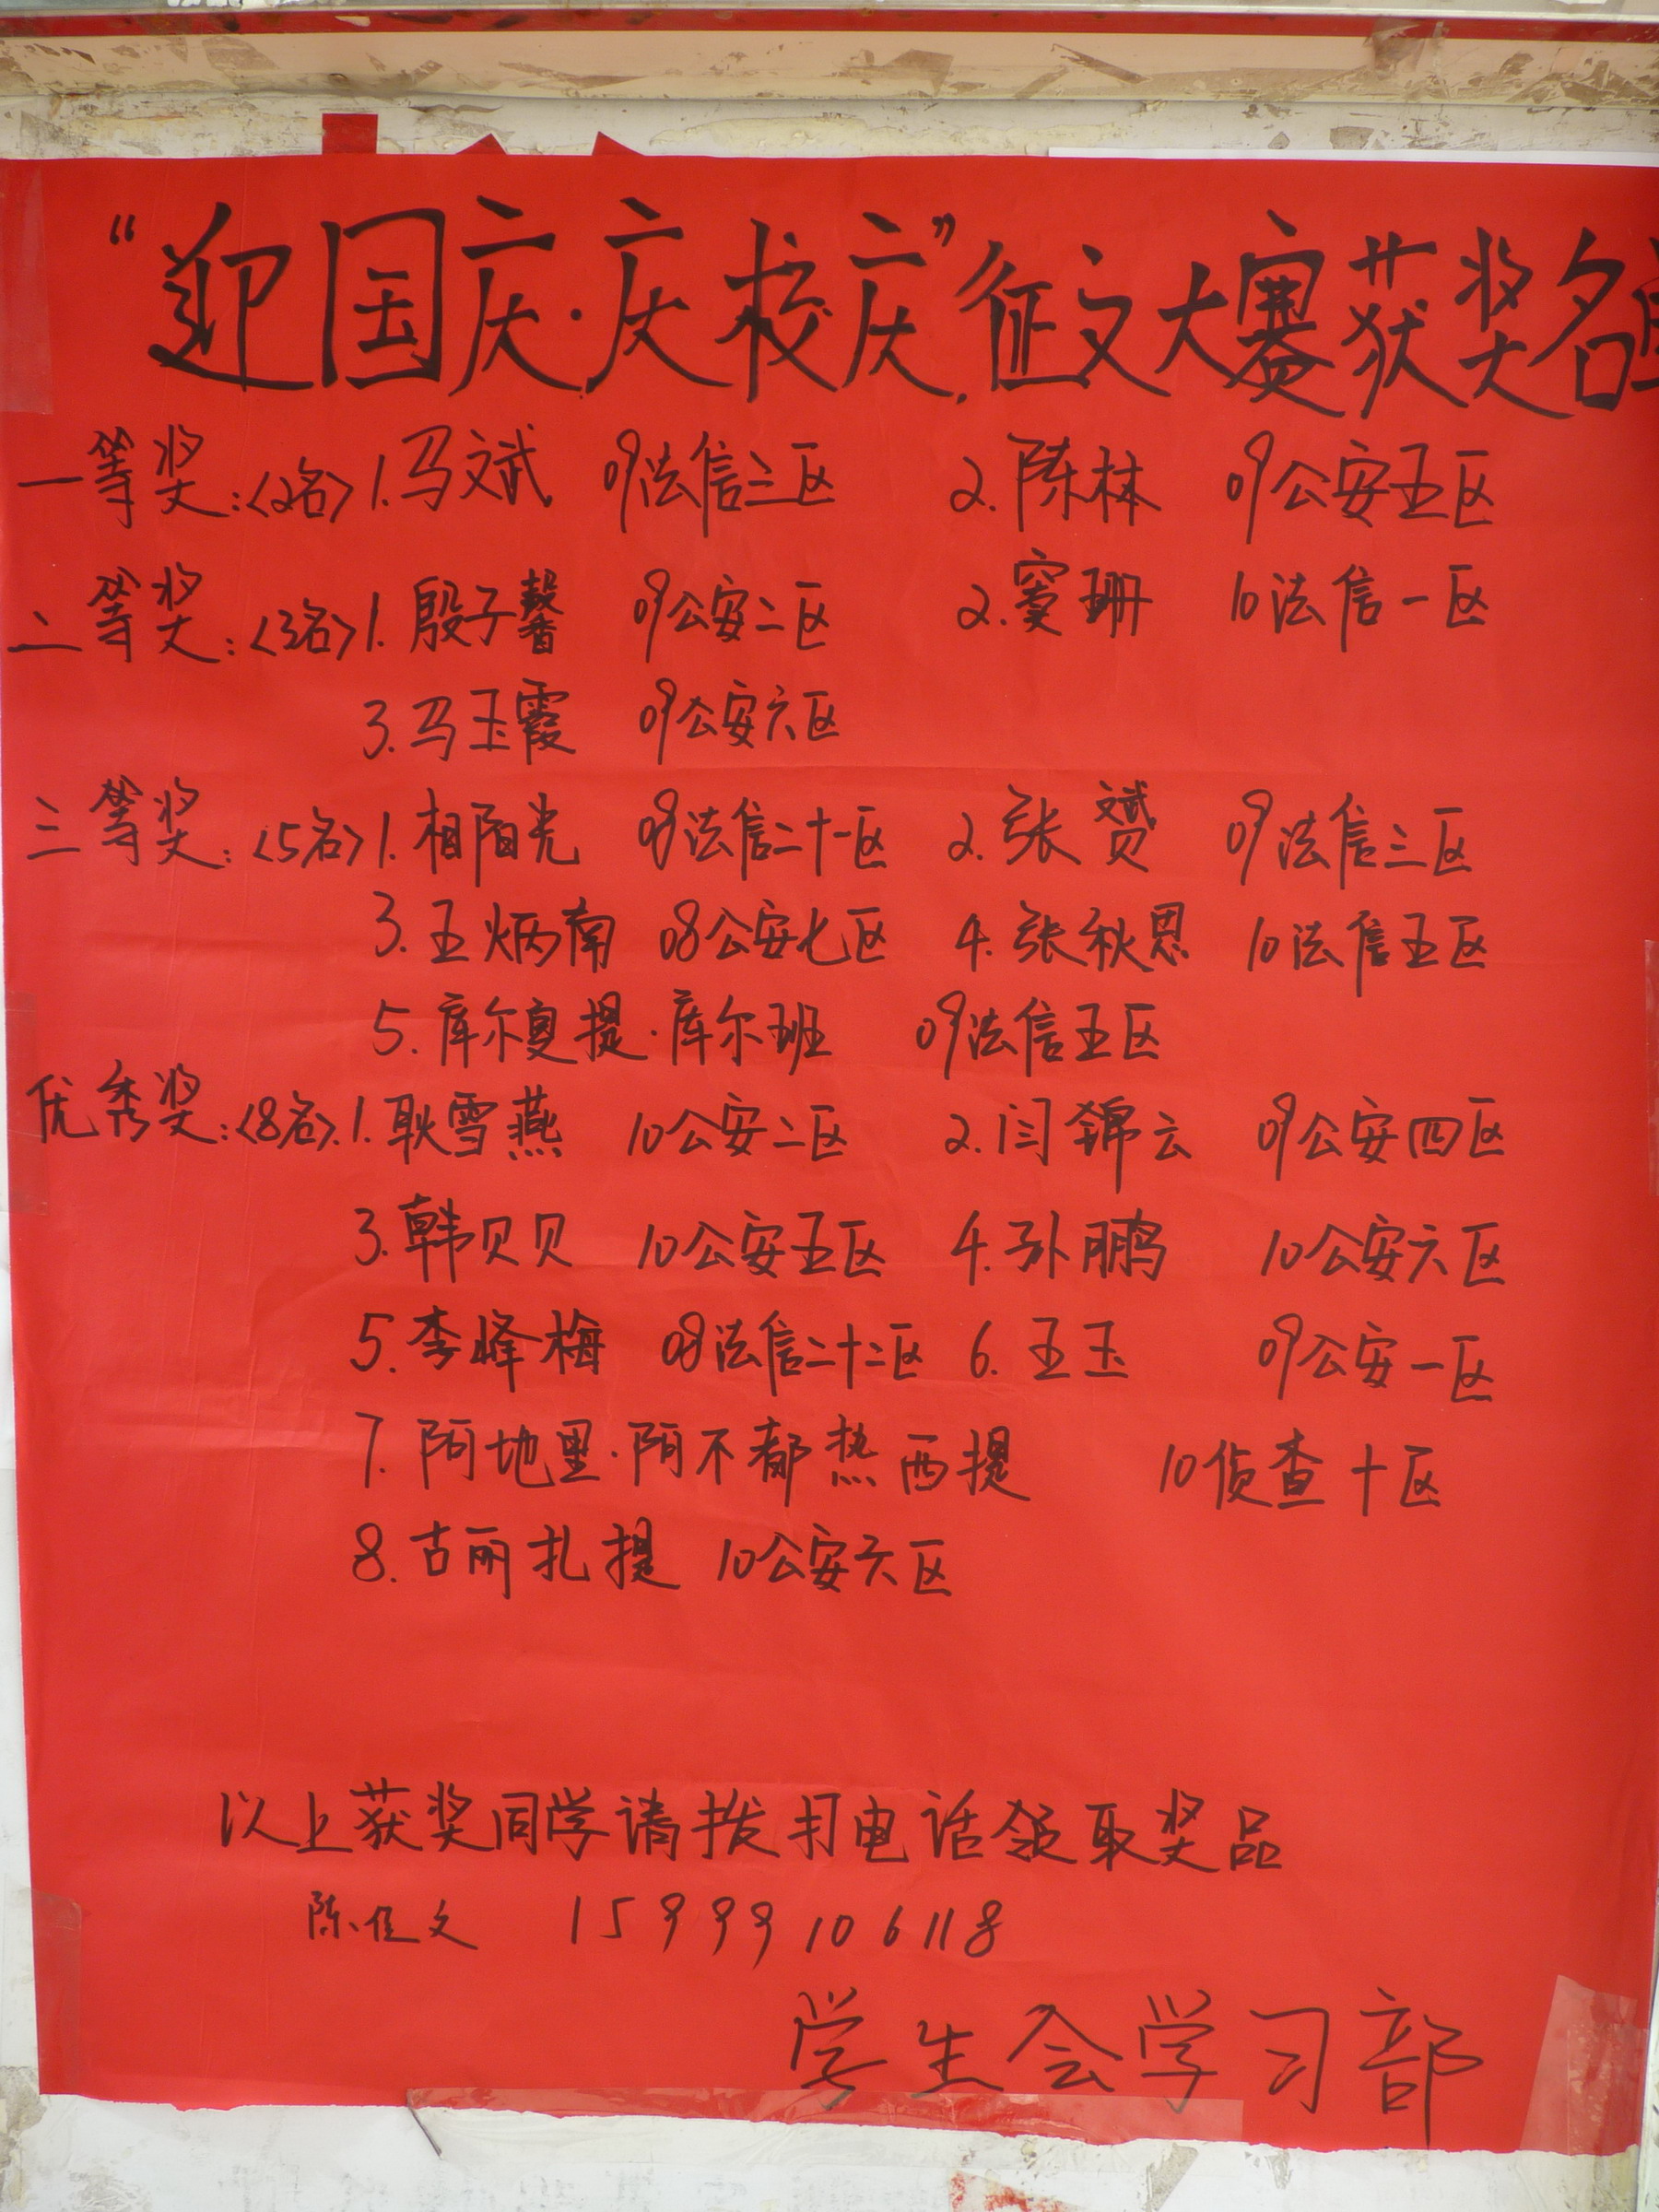 “迎国庆·庆校庆”征文大赛获奖名单
一等奖:<2名> 1.马文斌 09法信三区 2.陈林 09公安五区
二等奖:<3名> 1.殷子馨 09公安二区 2.窦珊 10法信一区
3.马玉霞 09公安六区
三等奖:<5名> 1.相阳光 08法信二十一区 2.张赟 09法信三区
3.王炳南 08公安七区 4.张秋恩 10法信五区
5.库尔夏提·库尔班 09法信五区
优秀奖:<8名> 1.耿雪燕 10公安二区 2.闫锦云 09公安四区
3.韩贝贝 10公安五区 4.孙鹏 10公安六区
5.李峰梅 08法信二十二区 6.王玉 09公安一区
7.阿地里·阿不都热西提 10侦查十区
8.古丽扎提 10公安六区
以上获奖同学请拨打电话领取奖品
陈佳文 15999106118
学生会学习部